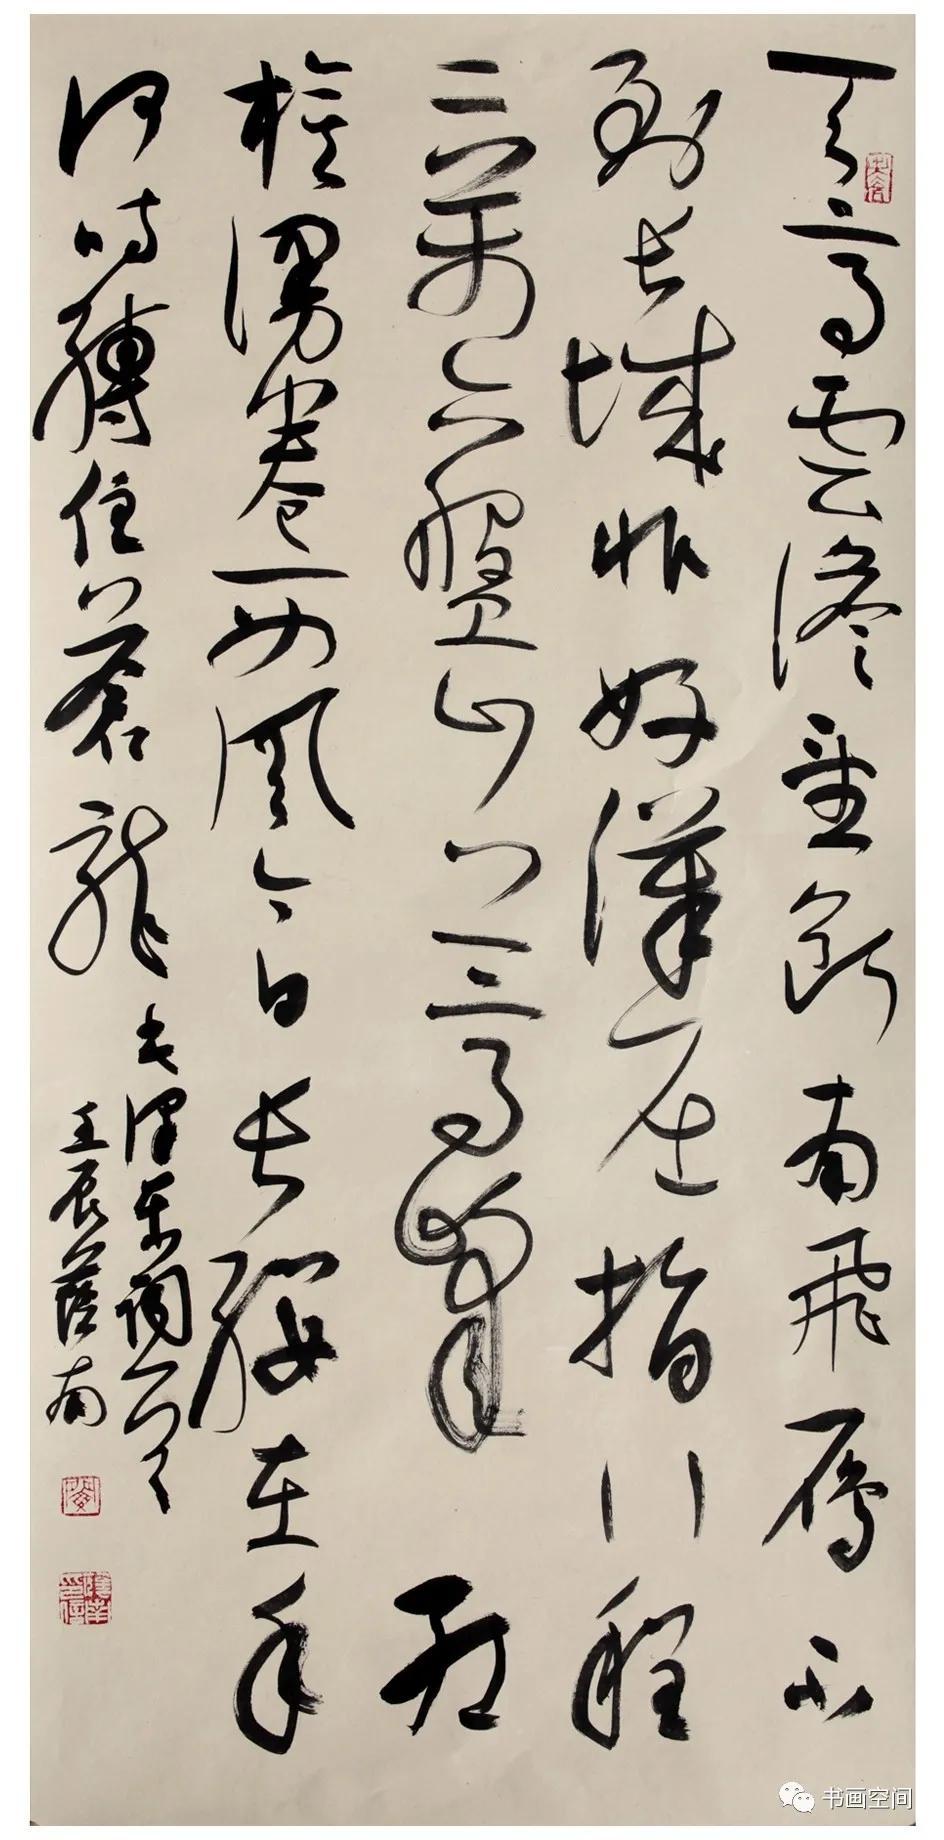 天高雲淡望斷南飛雁不
到長城非好漢屈指行程
二萬六盤山上高峰紅
旗漫卷西風今日長纓在手
何時縛住蒼龍
毛澤東詞一首
壬辰蔭南
书画空间